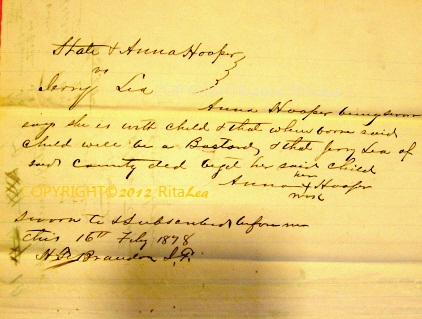 State & Anna Hooper
vs
Jerry Lea
Anna Hooper being sworn
says she is with child & that when borne said
child will be a Bastard & that Jery Lea of
said County did beget her said child
her
Anna x Hooper
mark
COPYRIGHT © 2012 Rita Lea
Sworn to & Subscribed before me
this 16th Feby 1878
Brandon J.P.